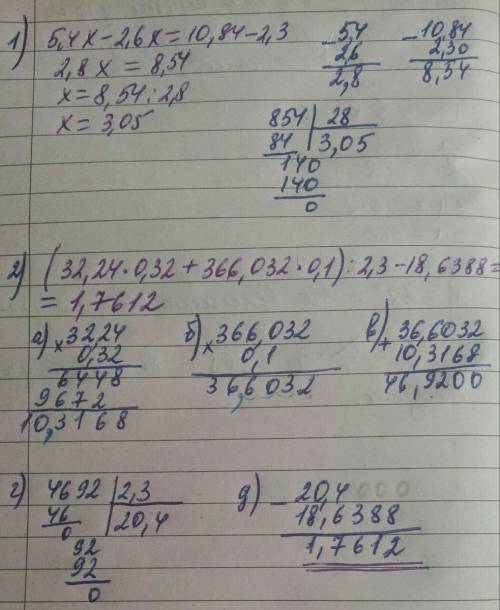 1) 5,4x-2,6x=10,84-2,3
2,8x = 8,54
x=8,54:2,8
x= 3,05
- 5,4
2,6
2,8
- 10,84
2,30
8,54
854 | 28
84 | 3,05
140
140
0
2) (32,24·0,32+366,032·0,1):2,3-18,6388=
= 1,7612
а) × 32,24
0,32
6448
9672
10,3168
б) × 366,032
0,1
36,6032
в) + 36,6032
10,3168
46,9200
г) 4692 | 2,3
46 | 20,4
0
92
92
0
д) - 20,4000
18,6388
1,7612